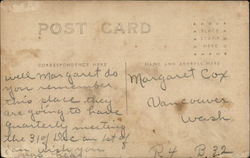 POST CARD
PLACE
STAMP
HERE
CORRESPONDENCE HERE
NAME AND ADDRESS HERE
well Margaret do
you remember
this place they
are going to have
quarterly meeting
the 31 of Dec an
I wish you
Margaret Cox
Vancouver
Wash.
R4 B 32